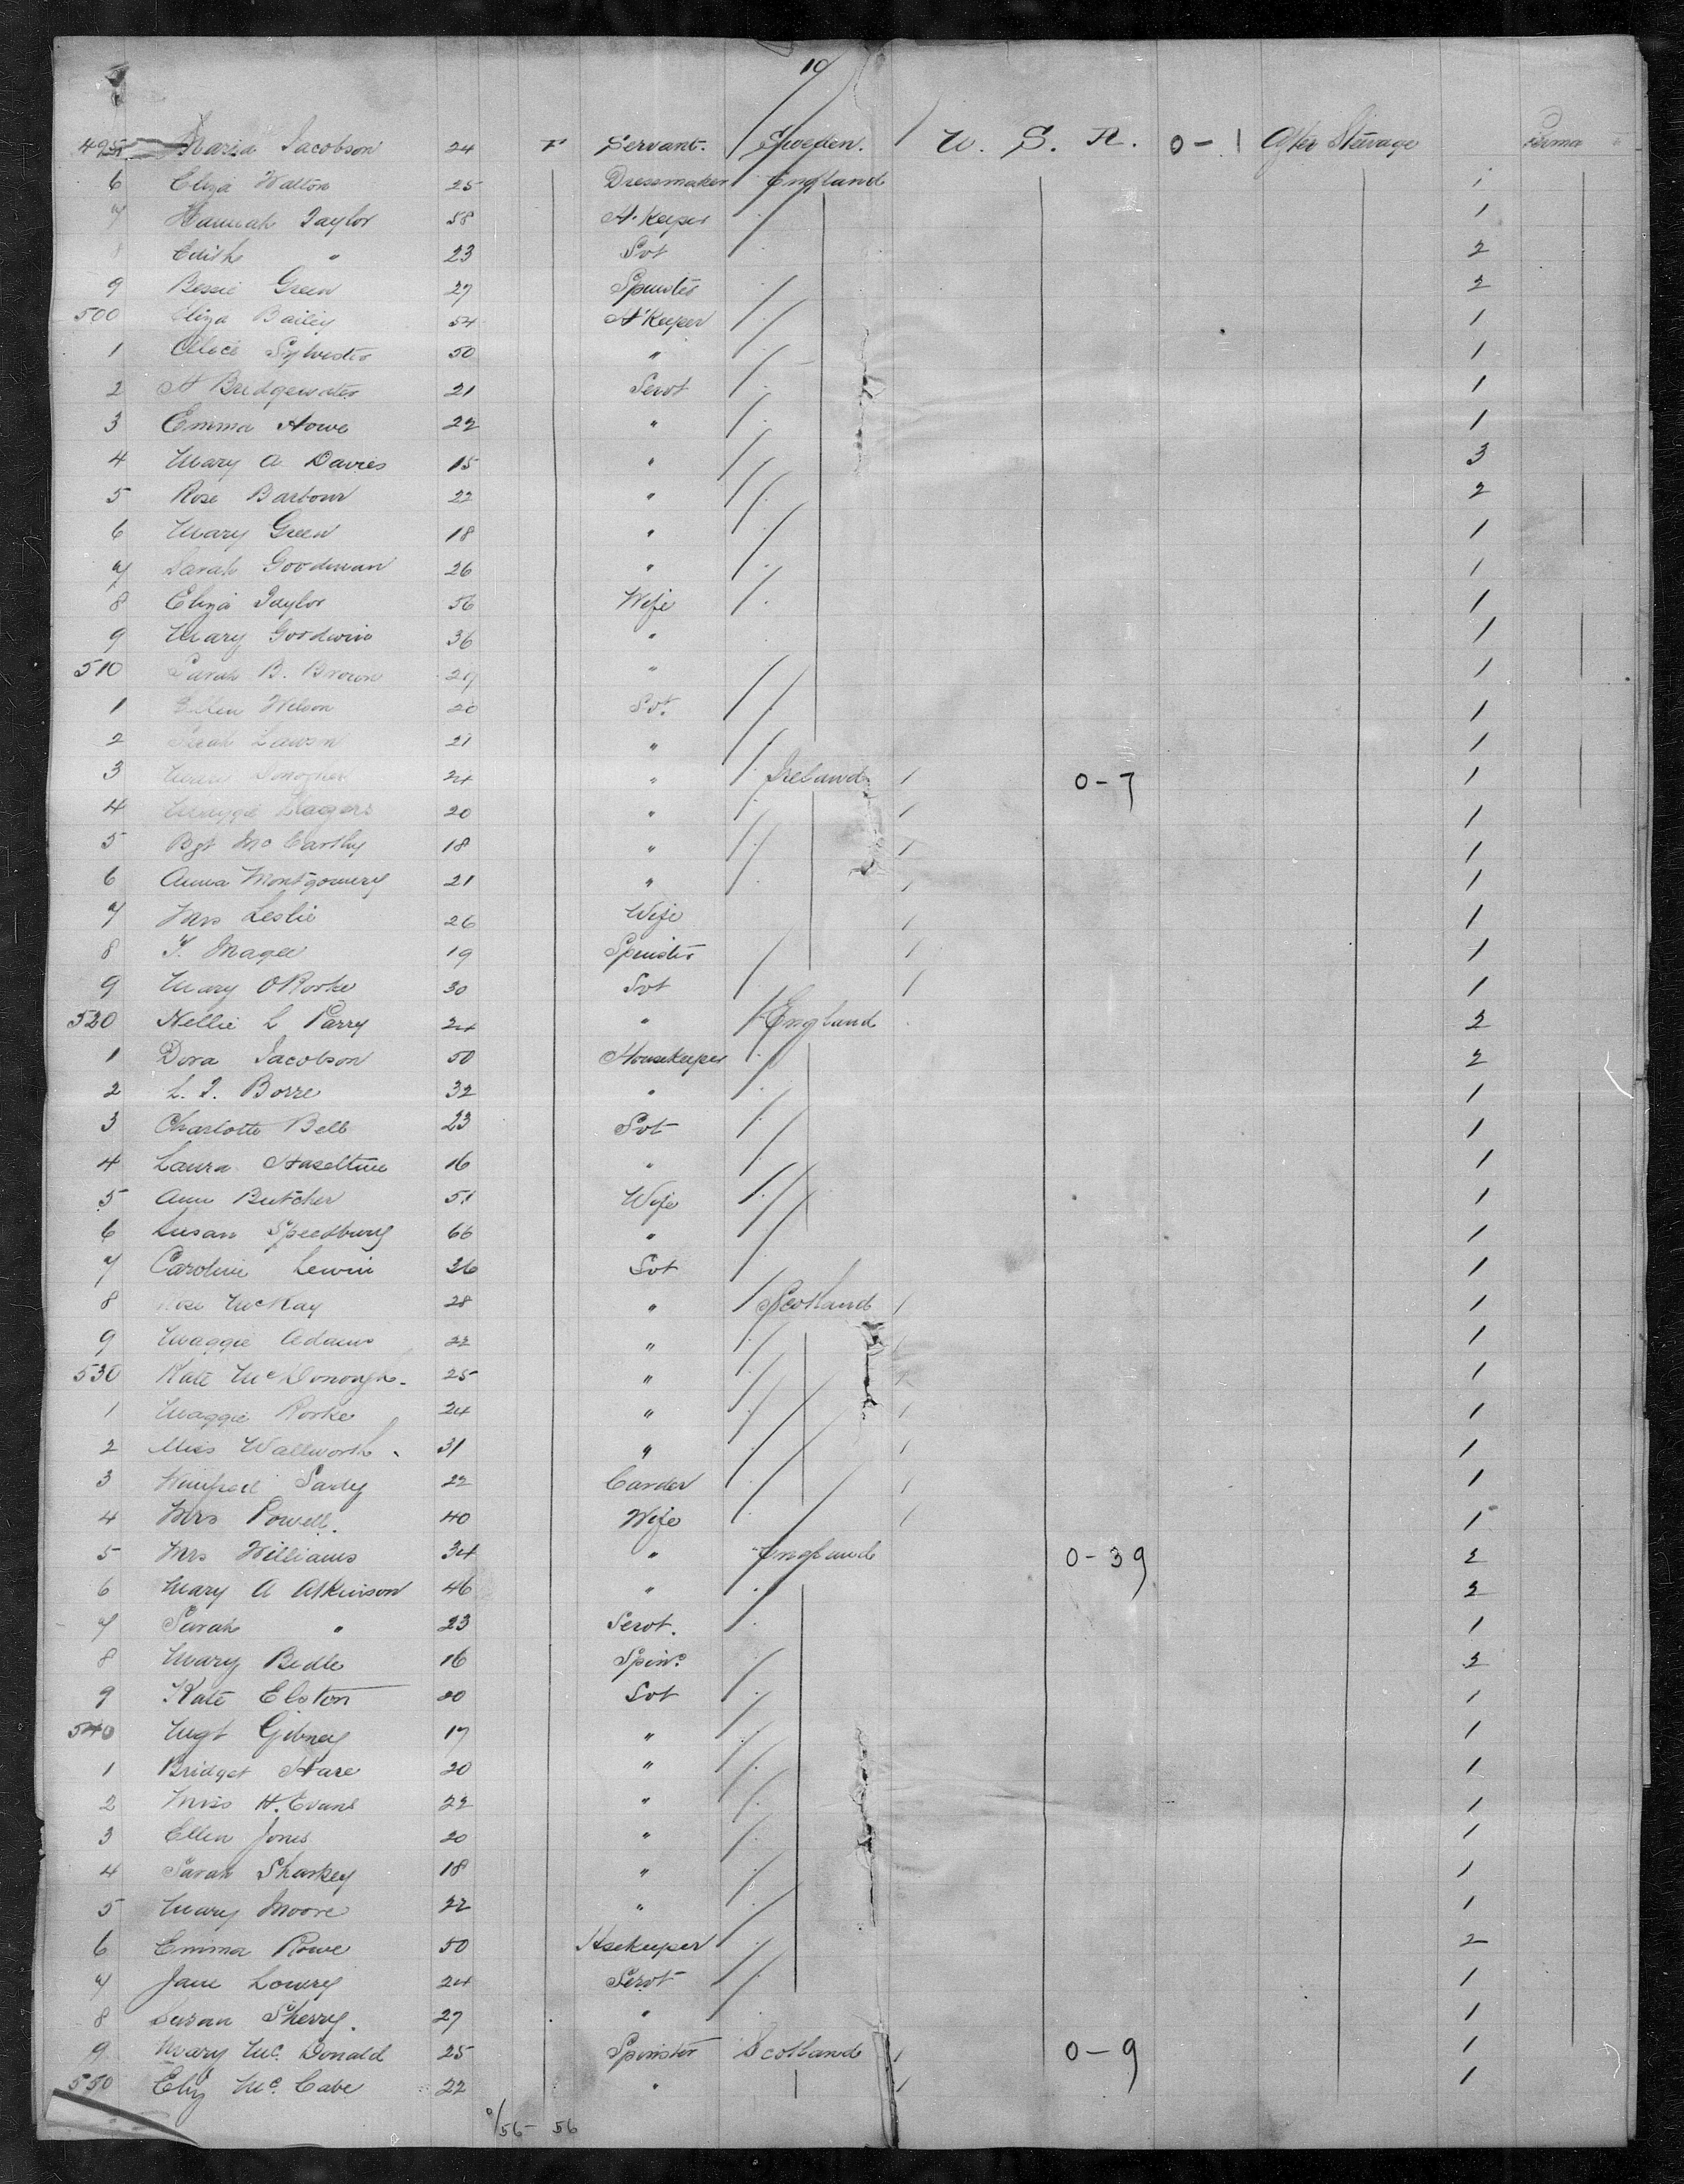 10
495 Maria Jacobson 24 F Servant. Sweden. / U. S. A. 0-1 After Steerage Perma
6 Eliza Walton 25 Dressmaker England 1
7 Hannah Taylor 58 H. Keeper 1
8 Edith " 23 Svt 2
9 Bessie Green 27 Spinster 2
500 Eliza Bailey 54 H Keeper 1
1 Alice Sylvester 50 " 1
2 H Bridgewater 21 Servt 1
3 Emma Howe 22 " 1
4 Mary A Davies 15 " 3
5 Rose Barbour 22 " 2
6 Mary Green 18 " 1
7 Sarah Goodman 26 " 1
8 Eliza Taylor 56 Wife 1
9 Mary Goodwin 36 " 1
510 Sarah B. Brown 29 " 1
1 Wilson 20 Svt. 1
2 Lawson 21 " 1
3 24 " Ireland / 0-7 1
4 Maggie 20 " / 1
5 Bgt McCarthy 18 " / 1
6 Anna Montgomery 21 " / 1
7 Mrs Leslie 26 Wife / 1
8 T. Magee 19 Spinster / 1
9 Mary O'Rorke 30 Svt / 1
520 Nellie L Parry 24 " England 2
1 Dora Jacobson 50 Housekeeper 2
2 L. J. Borre 32 " 1
3 Charlotte Bell 23 Svt 1
4 Laura Haseltine 16 " 1
5 Ann Butcher 51 Wife 1
6 Susan Speedbury 66 " 1
7 Caroline Lewin 26 Svt 1
8 Rose McKay 28 " Scotland / 1
9 Maggie Adams 22 " / 1
530 Kate McDonough. 25 " / 1
1 Maggie Rorke 24 " / 1
2 Miss Wallworth 31 " / 1
3 Winifred 22 Carder / 1
4 Mrs Powell. 40 Wife / 1
5 Mrs Williams 34 " England 0-39 2
6 Mary A Atkinson 46 " 2
7 Sarah " 23 Servt. 1
8 Mary Bedle 16 Spinr 2
9 Kate Elston 20 Svt 1
540 Mgt Gibney 17 " 1
1 Bridget Hare 20 " 1
2 Miss H. Evans 22 " 1
3 Ellen Jones 20 " 1
4 Sarah Sharkey 18 " 1
5 Mary Moore 22 " 1
6 Emma Rowe 50 Hsekeeper 2
7 Jane Lowry 24 Servt 1
8 Susan Sherry. 27 " 1
9 Mary McDonald 25 Spinster Scotland / 0-9 1
550 Eliz McCabe 22 " / 1
0/56 - 56